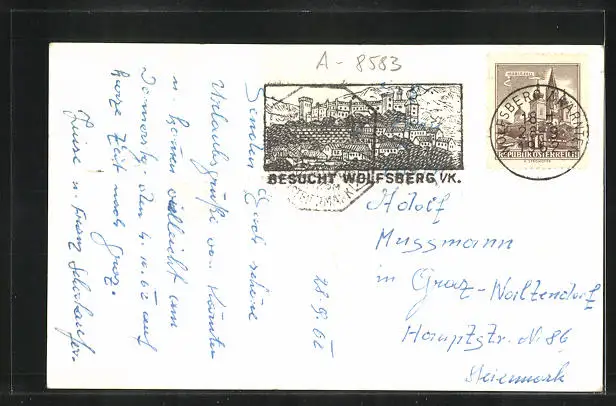 A - 8583
BESUCHT WOLFSBERG, I/K.
WOLFSBERG KÄRNTEN
REPUBLIK ÖSTERREICH
Senden Euch schöne
Urlaubsgrüße von Kärnten
u. kommen vielleicht am
Donnerstg. den 4.10.62 auf
kurze Zeit nach Graz.
Luise u. Franz
28.9.62
Adolf
Mussmann
in Graz-Waltendorf
Hauptstr. Nr 86
Steiermark